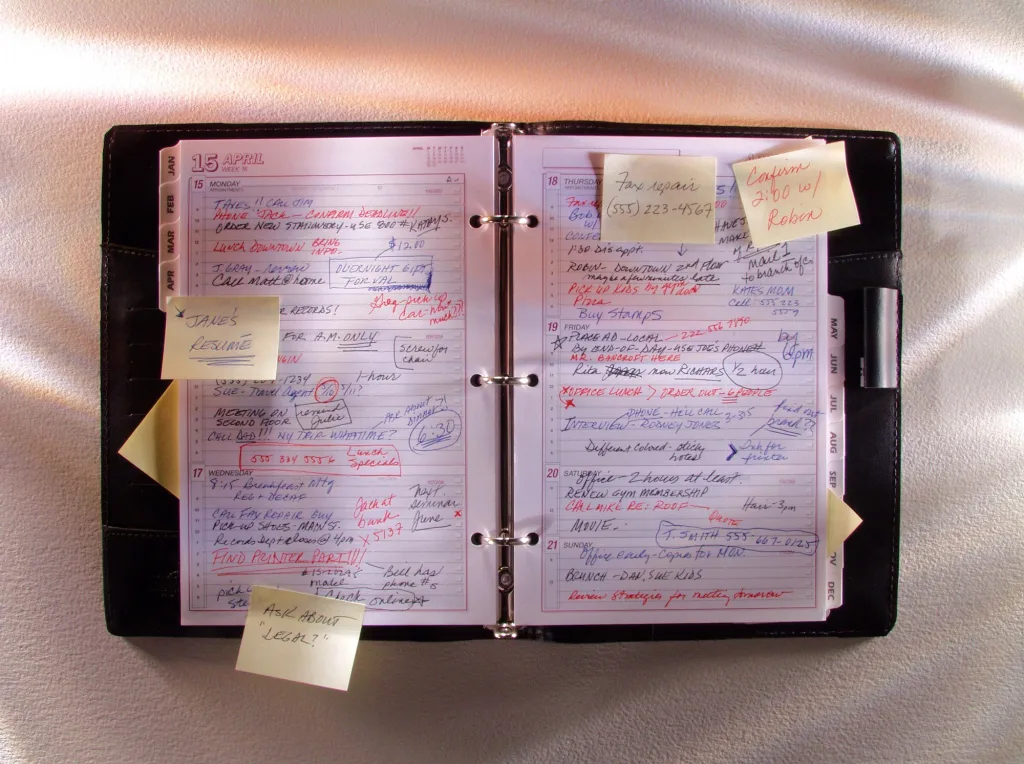 JAN
FEB
MAR
APR
15 APRIL
WEEK 16
15 MONDAY
TAXES!! CALL JIM
PHONE JACK - CONFIRM DEADLINE!!
ORDER NEW STATIONERY - USE 800 # KATHY'S.
LUNCH DOWNTOWN BRING INFO.
$12.00
J. GRAY -
Call Matt @ home
OVERNIGHT GIFT
FOR VAL
RECORDS!
Greg pick up
car - how
much??
JANE'S
RESUMÉ
FOR A.M. ONLY
Screws for
chair
1234
1-hour
SUE - Travel Agent
MEETING ON
SECOND FLOOR
remind
Julie
ASK ABOUT
DINNER?
6:30
CALL DAD!!! MY TRIP WHAT TIME?
555 334 5556
Lunch
Specials
17 WEDNESDAY
8:15 Breakfast Mtg
REG + DECAF
CALL FAX REPAIR GUY
PICK-UP SHOES - MAIN ST.
Records Dept closes @ 4pm
Jack at
bank
x5137
Next
Seminar
June
FIND PRINTER PART!!!
make
check
Bill has
phone #s
online
pick
ASK ABOUT
"LEGAL?"
18 THURSDAY
Fax repair
(555) 223-4567
Confirm
2:00 w/
Robin
1:30 DAS appt.
ROBIN - DOWNTOWN 2nd Floor
maybe a few minutes late
PICK UP KIDS BY
Pizza
Buy Stamps
Mail 1
to branch ofc.
KATES MOM
Call 555 223
5559
19 FRIDAY
PLACE AD - LOCAL - 222 556 7890
BY END-OF-DAY - ASK JOE'S PHONE#
MR. BANCROFT HERE
Rita now RICHARDS
1/2 hour
by
6pm
OFFICE LUNCH > ORDER OUT - 6 PEOPLE
PHONE - HILL CALL 3-3:15
INTERVIEW - RODNEY JONES
find out
brand??
Different colored - sticky
notes!
Ink for
printer
20 SATURDAY
Office - 2 hours at least.
RENEW GYM MEMBERSHIP
CALL MIKE RE: ROOF
Quote
Hair - 3pm
MOVIE.
T. SMITH 555-667-0125
21 SUNDAY
Office early - Copies for MON.
BRUNCH - DAN, SUE KIDS
Review Strategies for meeting tomorrow
MAY
JUN
JUL
AUG
SEP
DEC